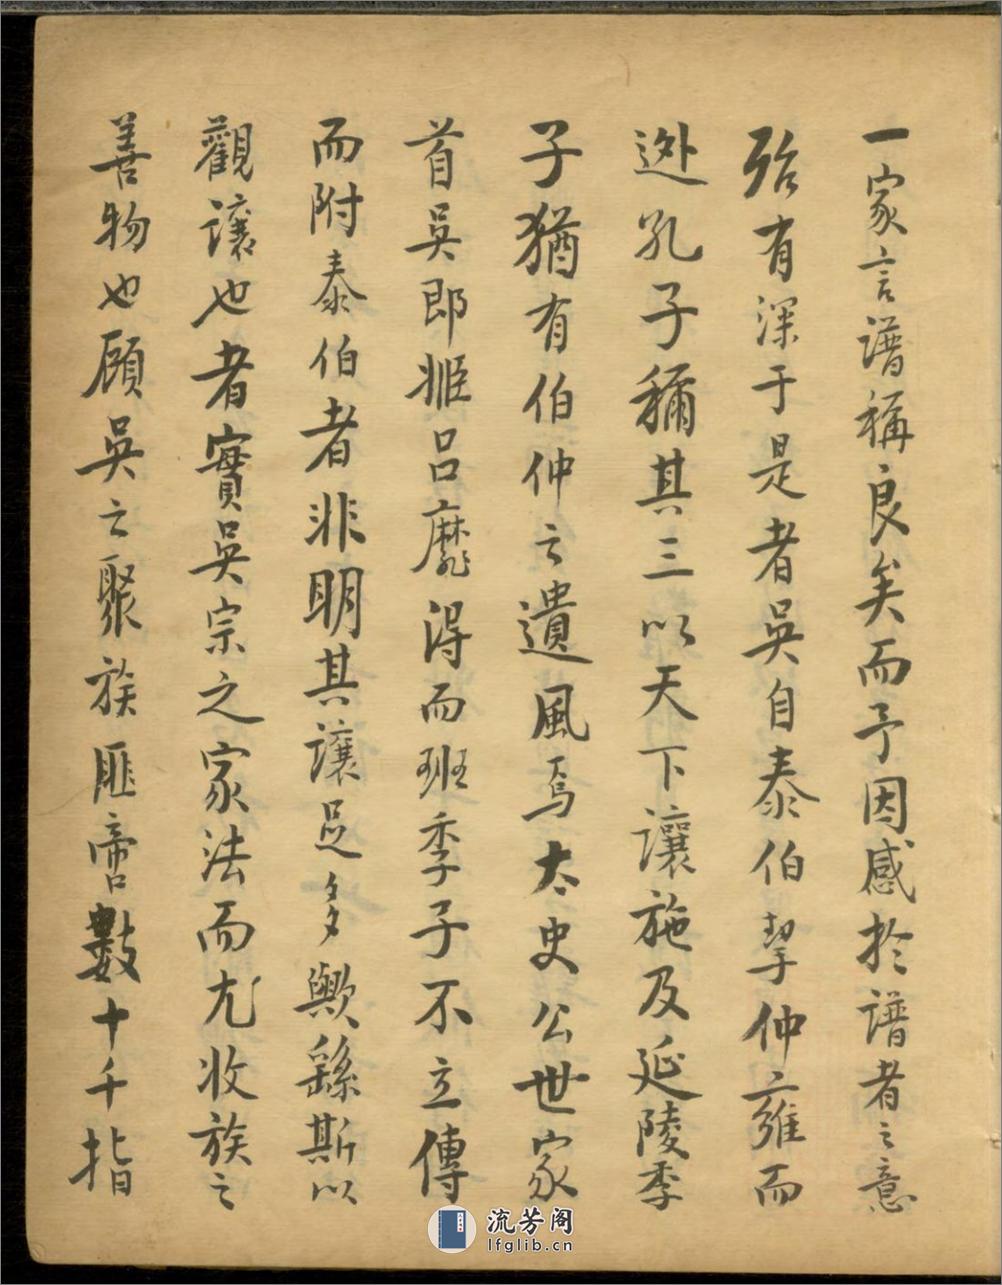 一家言譜稱良矣而予因感於譜者之意
殆有深于是者吳自泰伯挈仲雍而
迯孔子穪其三以天下讓施及延陵季
子猶有伯仲之遺風焉太史公世家
首吳即姬呂靡得而班季子不立傳
而附泰伯者非明其讓足多歟繇斯以
觀讓也者實吳宗之家法而尤收族之
善物也顧吳之聚族匪啻數十千指
流芳阁
lfglib.cn